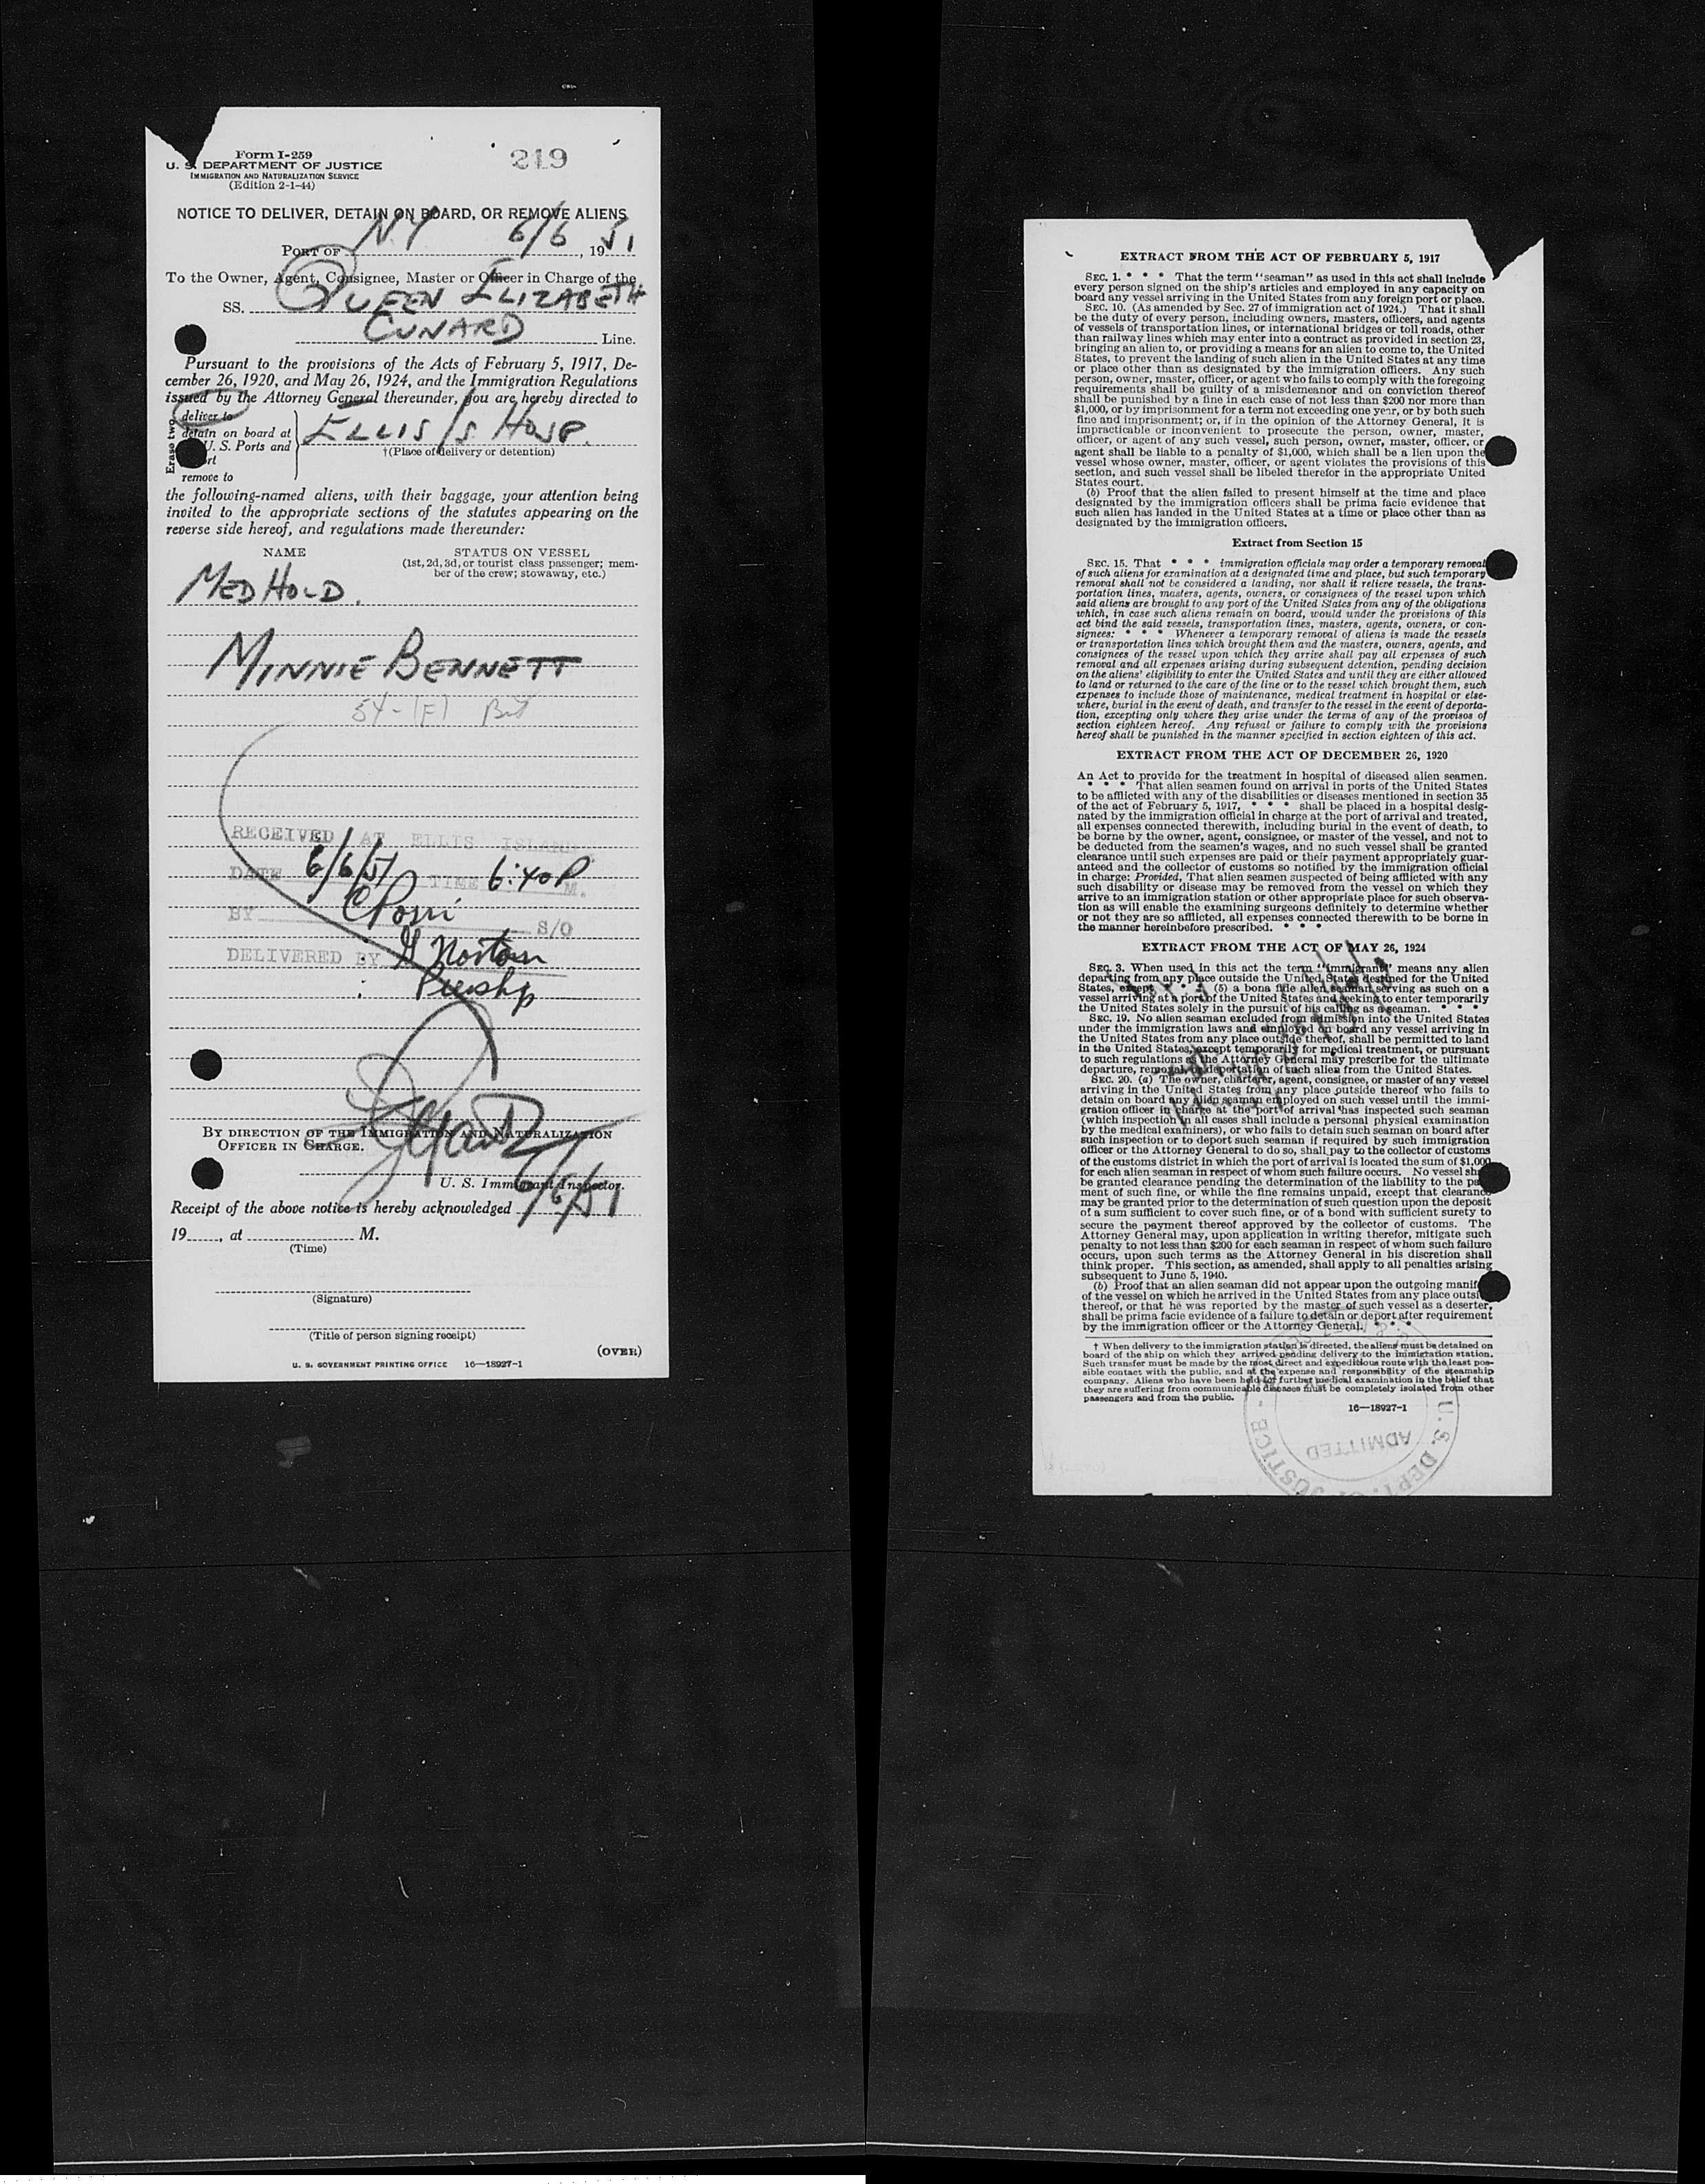 219
Form I-259
U. S. DEPARTMENT OF JUSTICE
IMMIGRATION AND NATURALIZATION SERVICE
(Edition 2-1-44)
NOTICE TO DELIVER, DETAIN ON BOARD, OR REMOVE ALIENS
PORT OF N.Y 6/6, 1951
To the Owner, Agent, Consignee, Master or Officer in Charge of the
SS. QUEEN ELIZABETH
CUNARD Line.
Pursuant to the provisions of the Acts of February 5, 1917, De-
cember 26, 1920, and May 26, 1924, and the Immigration Regulations
issued by the Attorney General thereunder, you are hereby directed to
Erase two
deliver to
detain on board at
U. S. Ports and
remove to
ELLIS IS HOSP.
†(Place of delivery or detention)
the following-named aliens, with their baggage, your attention being
invited to the appropriate sections of the statutes appearing on the
reverse side hereof, and regulations made thereunder:
NAME STATUS ON VESSEL
(1st, 2d, 3d, or tourist class passenger; mem-
ber of the crew; stowaway, etc.)
MED HOLD.
MINNIE BENNETT
54-(F) Brit
RECEIVED AT ELLIS ISLAND
DATE 6/6/51 TIME 6:40 P M.
BY S/O
DELIVERED BY: Norton
BY DIRECTION OF THE IMMIGRATION AND NATURALIZATION
OFFICER IN CHARGE.
U. S. Immigrant Inspector.
Receipt of the above notice is hereby acknowledged 6/6/51
19, at M.
(Time)
(Signature)
(Title of person signing receipt)
(OVER)
U. S. GOVERNMENT PRINTING OFFICE 16—18927-1
EXTRACT FROM THE ACT OF FEBRUARY 5, 1917
SEC. 1. * * * That the term "seaman" as used in this act shall include
every person signed on the ship's articles and employed in any capacity on
board any vessel arriving in the United States from any foreign port or place.
SEC. 10. (As amended by Sec. 27 of immigration act of 1924.) That it shall
be the duty of every person, including owners, masters, officers, and agents
of vessels of transportation lines, or international bridges or toll roads, other
than railway lines which may enter into a contract as provided in section 23,
bringing an alien to, or providing a means for an alien to come to, the United
States, to prevent the landing of such alien in the United States at any time
or place other than as designated by the immigration officers. Any such
person, owner, master, officer, or agent who fails to comply with the foregoing
requirements shall be guilty of a misdemeanor and on conviction thereof
shall be punished by a fine in each case of not less than $200 nor more than
$1,000, or by imprisonment for a term not exceeding one year, or by both such
fine and imprisonment; or, if in the opinion of the Attorney General, it is
impracticable or inconvenient to prosecute the person, owner, master,
officer, or agent of any such vessel, such person, owner, master, officer, or
agent shall be liable to a penalty of $1,000, which shall be a lien upon the
vessel whose owner, master, officer, or agent violates the provisions of this
section, and such vessel shall be libeled therefor in the appropriate United
States court.
(b) Proof that the alien failed to present himself at the time and place
designated by the immigration officers shall be prima facie evidence that
such alien has landed in the United States at a time or place other than as
designated by the immigration officers.
Extract from Section 15
SEC. 15. That * * * immigration officials may order a temporary removal
of such aliens for examination at a designated time and place, but such temporary
removal shall not be considered a landing, nor shall it relieve vessels, the trans-
portation lines, masters, agents, owners, or consignees of the vessel upon which
said aliens are brought to any port of the United States from any of the obligations
which, in case such aliens remain on board, would under the provisions of this
act bind the said vessels, transportation lines, masters, agents, owners, or con-
signees: * * * Whenever a temporary removal of aliens is made the vessels
or transportation lines which brought them and the masters, owners, agents, and
consignees of the vessel upon which they arrive shall pay all expenses of such
removal and all expenses arising during subsequent detention, pending decision
on the aliens' eligibility to enter the United States and until they are either allowed
to land or returned to the care of the line or to the vessel which brought them, such
expenses to include those of maintenance, medical treatment in hospital or else-
where, burial in the event of death, and transfer to the vessel in the event of deporta-
tion, excepting only where they arise under the terms of any of the provisos of
section eighteen hereof. Any refusal or failure to comply with the provisions
hereof shall be punished in the manner specified in section eighteen of this act.
EXTRACT FROM THE ACT OF DECEMBER 26, 1920
An Act to provide for the treatment in hospital of diseased alien seamen.
* * * That alien seamen found on arrival in ports of the United States
to be afflicted with any of the disabilities or diseases mentioned in section 35
of the act of February 5, 1917, * * * shall be placed in a hospital desig-
nated by the immigration official in charge at the port of arrival and treated,
all expenses connected therewith, including burial in the event of death, to
be borne by the owner, agent, consignee, or master of the vessel, and not to
be deducted from the seamen's wages, and no such vessel shall be granted
clearance until such expenses are paid or their payment appropriately guar-
anteed and the collector of customs so notified by the immigration official
in charge: Provided, That alien seamen suspected of being afflicted with any
such disability or disease may be removed from the vessel on which they
arrive to an immigration station or other appropriate place for such observa-
tion as will enable the examining surgeons definitely to determine whether
or not they are so afflicted, all expenses connected therewith to be borne in
the manner hereinbefore prescribed. * * *
EXTRACT FROM THE ACT OF MAY 26, 1924
SEC. 3. When used in this act the term "immigrant" means any alien
departing from any place outside the United States destined for the United
States, except * * * (5) a bona fide alien seaman serving as such on a
vessel arriving at a port of the United States and seeking to enter temporarily
the United States solely in the pursuit of his calling as a seaman.
SEC. 19. No alien seaman excluded from admission into the United States
under the immigration laws and employed on board any vessel arriving in
the United States from any place outside thereof, shall be permitted to land
in the United States, except temporarily for medical treatment, or pursuant
to such regulations as the Attorney General may prescribe for the ultimate
departure, removal, or deportation of such alien from the United States.
SEC. 20. (a) The owner, charterer, agent, consignee, or master of any vessel
arriving in the United States from any place outside thereof who fails to
detain on board any alien seaman employed on such vessel until the immi-
gration officer in charge at the port of arrival has inspected such seaman
(which inspection in all cases shall include a personal physical examination
by the medical examiners), or who fails to detain such seaman on board after
such inspection or to deport such seaman if required by such immigration
officer or the Attorney General to do so, shall pay to the collector of customs
of the customs district in which the port of arrival is located the sum of $1,000
for each alien seaman in respect of whom such failure occurs. No vessel sha
be granted clearance pending the determination of the liability to the pa
ment of such fine, or while the fine remains unpaid, except that clearance
may be granted prior to the determination of such question upon the deposit
of a sum sufficient to cover such fine, or of a bond with sufficient surety to
secure the payment thereof approved by the collector of customs. The
Attorney General may, upon application in writing therefor, mitigate such
penalty to not less than $200 for each seaman in respect of whom such failure
occurs, upon such terms as the Attorney General in his discretion shall
think proper. This section, as amended, shall apply to all penalties arising
subsequent to June 5, 1940.
(b) Proof that an alien seaman did not appear upon the outgoing manif
of the vessel on which he arrived in the United States from any place outsi
thereof, or that he was reported by the master of such vessel as a deserter,
shall be prima facie evidence of a failure to detain or deport after requirement
by the immigration officer or the Attorney General. * * *
† When delivery to the immigration station is directed, the aliens must be detained on
board of the ship on which they arrived pending delivery to the immigration station.
Such transfer must be made by the most direct and expeditious route with the least pos-
sible contact with the public, and at the expense and responsibility of the steamship
company. Aliens who have been held for further medical examination in the belief that
they are suffering from communicable diseases must be completely isolated from other
passengers and from the public.
16—18927-1
ADMITTED
U. S. DEPT. OF JUSTICE